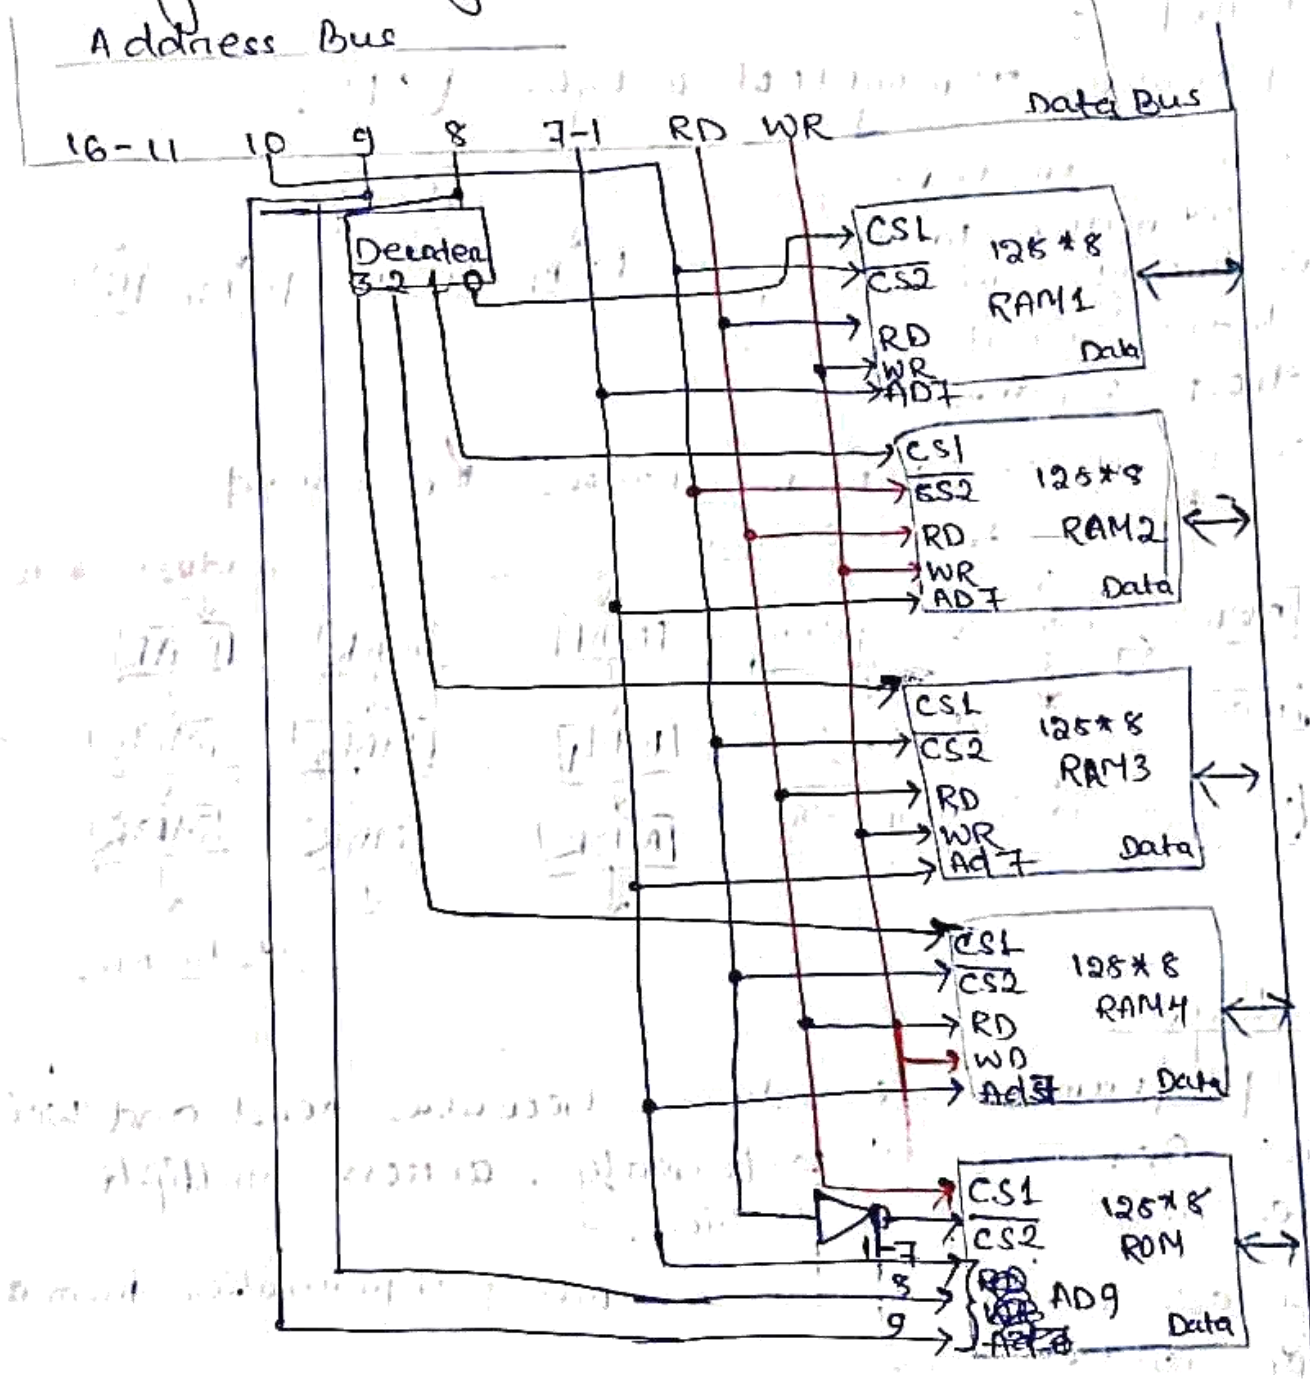 Address Bus
Data Bus
16-11 10 9 8 7-1 RD WR
Decoder
3 2 1 0
CS1
CS2
RD
WR
AD7
128*8
RAM1
Data
CS1
CS2
RD
WR
AD7
128*8
RAM2
Data
CS1
CS2
RD
WR
Ad7
128*8
RAM3
Data
CS1
CS2
RD
WD
Ad7
128*8
RAM4
Data
CS1
CS2
1-7
8
9
AD9
128*8
ROM
Data